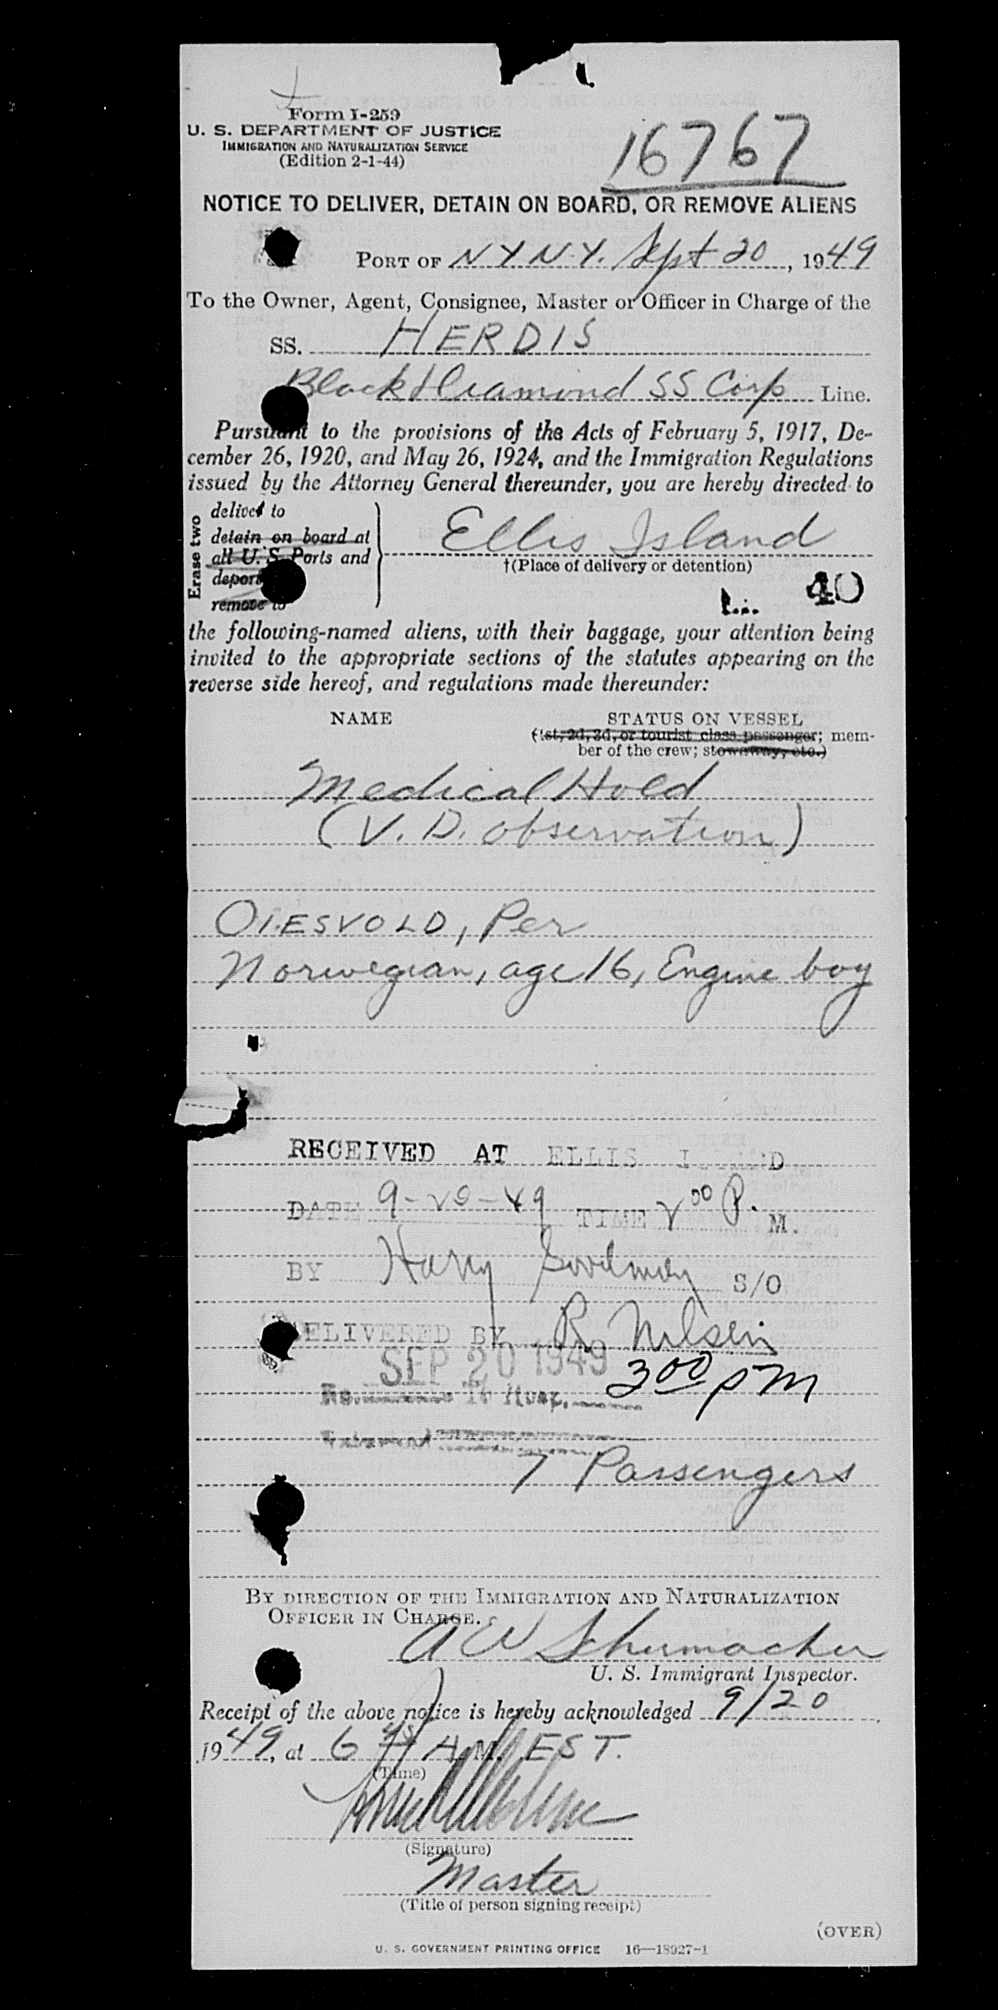 Form I-259
U. S. DEPARTMENT OF JUSTICE
IMMIGRATION AND NATURALIZATION SERVICE
(Edition 2-1-44)
16767
NOTICE TO DELIVER, DETAIN ON BOARD, OR REMOVE ALIENS
PORT OF N.Y.N.Y. Sept 20, 1949
To the Owner, Agent, Consignee, Master or Officer in Charge of the
SS. HERDIS
Black Diamond SS Corp Line.
Pursuant to the provisions of the Acts of February 5, 1917, De-
cember 26, 1920, and May 26, 1924, and the Immigration Regulations
issued by the Attorney General thereunder, you are hereby directed to
Erase two
deliver to
detain on board at
all U. S. Ports and
deport
remove to
Ellis Island
†(Place of delivery or detention)
40
the following-named aliens, with their baggage, your attention being
invited to the appropriate sections of the statutes appearing on the
reverse side hereof, and regulations made thereunder:
NAME STATUS ON VESSEL
(1st, 2d, 3d, or tourist class passenger; mem-
ber of the crew; stowaway, etc.)
Medical Hold
(V. D. observation)
OIESVOLD, Per
Norwegian, age 16, Engine boy
RECEIVED AT ELLIS ISLAND
DATE 9-20-49 TIME 2 00 P. M.
BY Harry S/O
DELIVERED BY R Nilsen
SEP 20 1949
3 00 PM
To Hosp.
7 Passengers
BY DIRECTION OF THE IMMIGRATION AND NATURALIZATION
OFFICER IN CHARGE.
A W Schumacher
U. S. Immigrant Inspector.
Receipt of the above notice is hereby acknowledged 9/20
1949, at 6 45 A. M. EST.
(Time)
(Signature)
Master
(Title of person signing receipt)
(OVER)
U. S. GOVERNMENT PRINTING OFFICE 16—18927-1